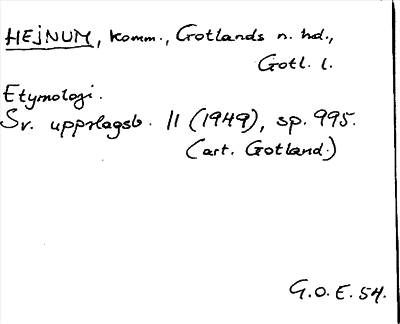 HEJNUM, komm., Gotlands n. hd.,
Gotl. l.
Etymologi.
Sv. uppslagsb. 11 (1949), sp. 995.
(art. Gotland.)
G.O.E. 54.